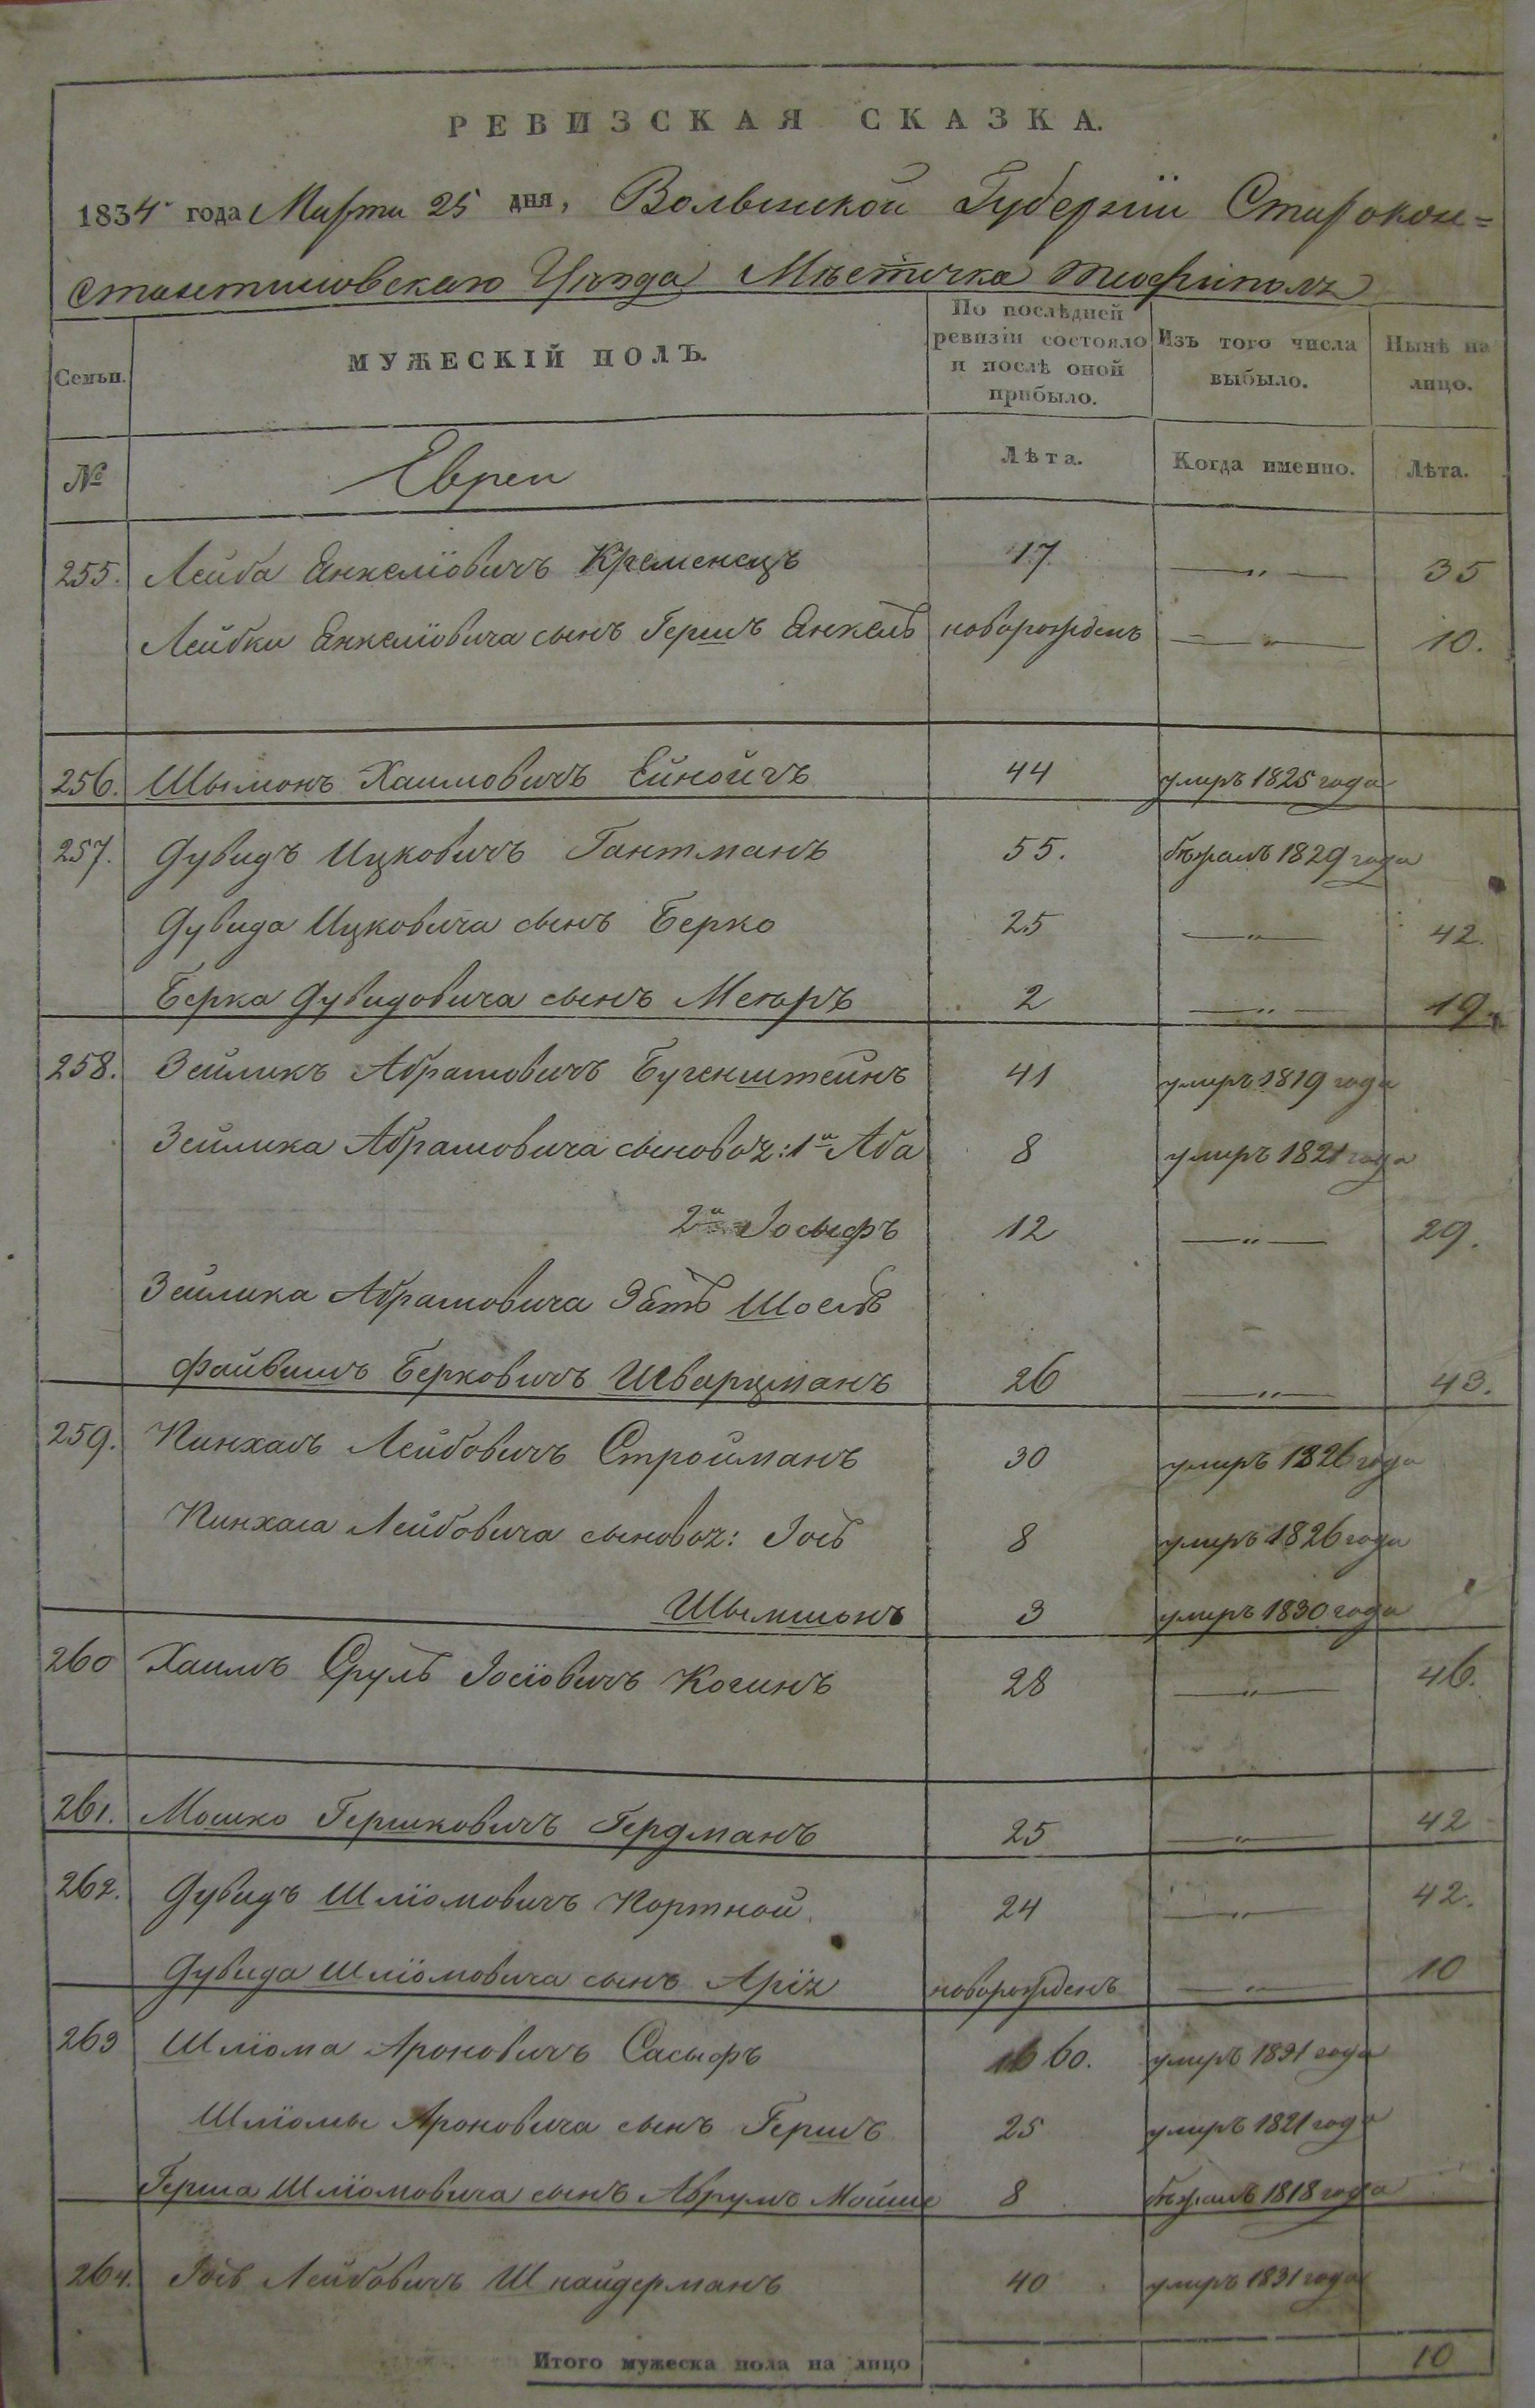 РЕВИЗСКАЯ СКАЗКА.
1834 года Марта 25 дня, Волынской Губернии Старокон=
стантиновскаго Уѣзда Мѣстечка Теофиполь
Семьи.
МУЖЕСКІЙ ПОЛЪ.
По послѣдней ревизіи состояло и послѣ оной прибыло.
Изъ того числа выбыло.
Нынѣ на лицо.
№ Евреи Лѣта. Когда именно. Лѣта.
255. Лейба Янкеліовичъ Кременецъ 17 —„— 35
Лейбки Янкеліовича сынъ Гершъ Янкель новорожденъ —„— 10.
256. Шымонъ Хаимовичъ 44 умиръ 1825 года
257. Дувидъ Ицковичъ Гантманъ 55. бѣжалъ 1829 года
Дувида Ицковича сынъ Берко 25 —„— 42.
Берка Дувидовича сынъ Меюръ 2 —„— 19.
258. Зейликъ Абрамовичъ Бугенштейнъ 41 умиръ 1819 года
Зейлика Абрамовича сыновья: 1й Аба 8 умиръ 1821 года
2й Іосыфъ 12 —„— 29.
Зейлика Абрамовича Зять Шоель
Файвишъ Берковичъ Шварцманъ 26 —„— 43.
259. Пинхасъ Лейбовичъ Стройманъ 30 умиръ 1826 года
Пинхаса Лейбовича сыновья: Іось 8 умиръ 1826 года
Шымшонъ 3 умиръ 1830 года
260 Хаимъ Сруль Іосіовичъ Когинъ 28 —„— 46.
261. Мошко Гершковичъ Гердманъ 25 —„— 42
262. Дувидъ Шліомовичъ Портной 24 —„— 42.
Дувида Шліомовича сынъ Аріх новорожденъ —„— 10
263 Шліома Ароновичъ Сасыфъ 60. умиръ 1831 года
Шліомы Ароновича сынъ Гершъ 25 умиръ 1821 года
Герша Шліомовича сынъ Абрумъ Мойше 8 бѣжалъ 1818 года
264. Іось Лейбовичъ Шнайдерманъ 40 умиръ 1831 года
Итого мужеска пола на лицо 10